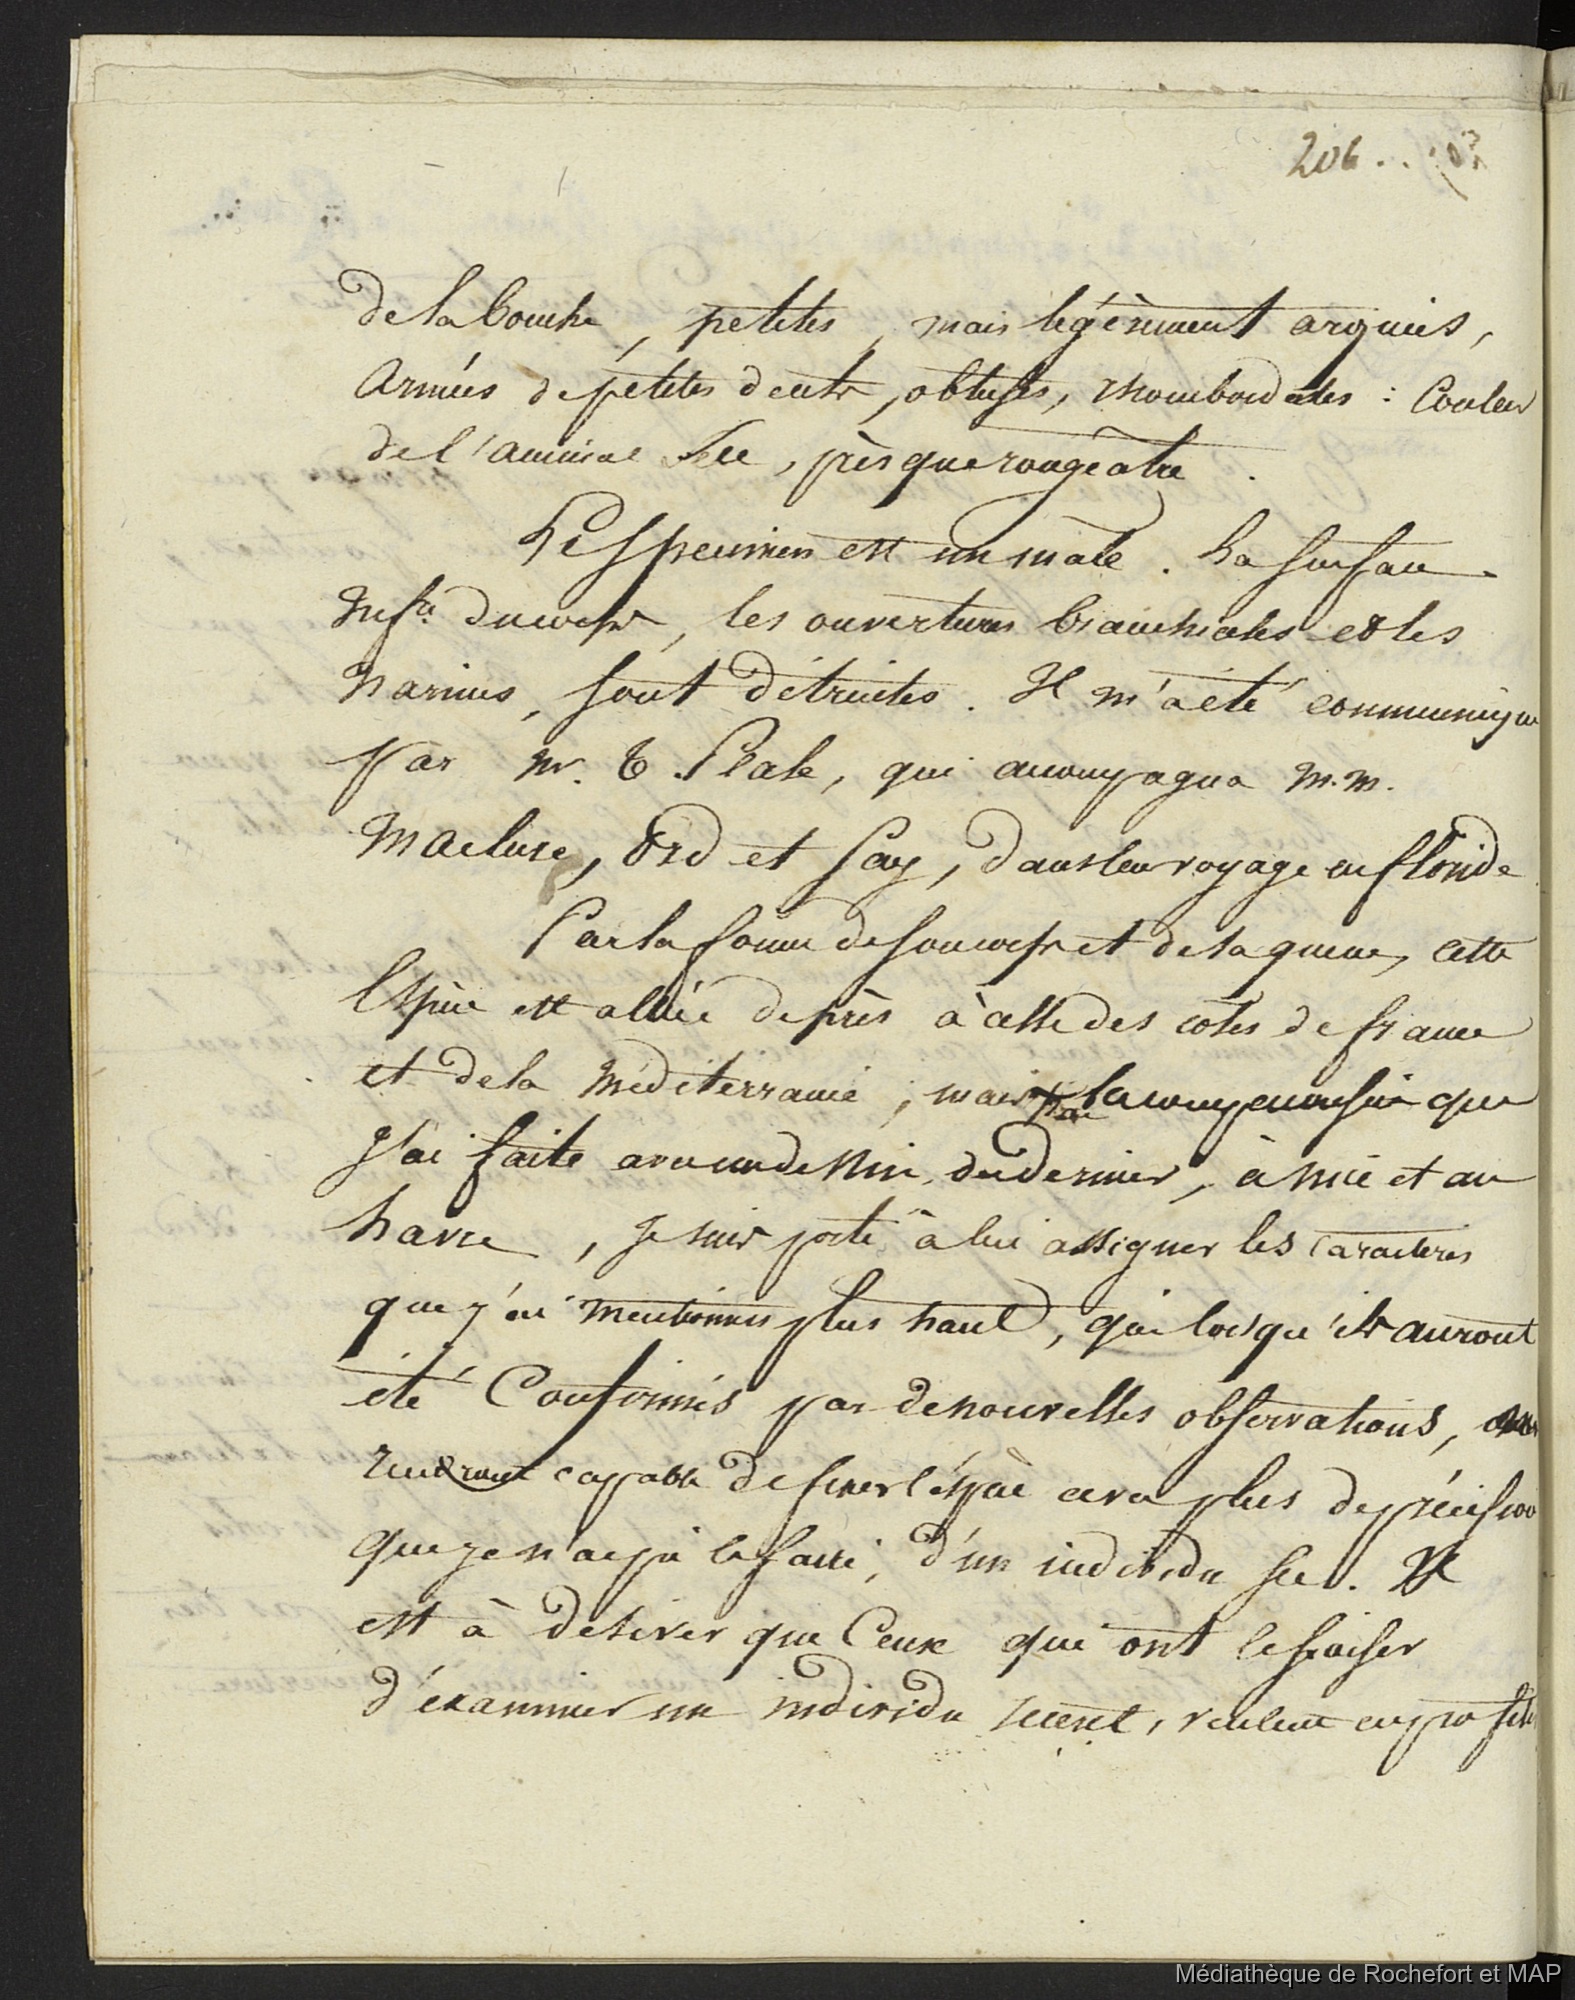 206..
de la bouche, petites, mais légèrement arquées,
armées de petites dents, obtuses, rhomboidales : Couleur
de l'animal sec, présque rougeâtre.
Le specimen est un mâle. La surface
infre. du corps, les ouvertures branchiales et les
narines, sont détruites. Il m'a été communiqué
par Mr. T. Peale, qui accompagna M.M.
Maclure, Ord et Say, dans leur voyage en floride
Par la forme de son corps et de sa queue, cette
Espèce est alliée de près à celle des cotes de france
et de la méditerranée ; mais par la comparaison que
j'ai faite avec un dessin du dernier, à nice et au
havre, je suis porté à lui assigner les caracteres
que j'ai mentionnés plus haut, qui lorsqu'ils auront
été Confirmés par de nouvelles observations, me
rendront capable de fixer l'éspèce avec plus de précision
que je n'ai pu le faire, d'un individu sec. Il
est à desirer que Ceux qui ont le loisir
d'éxaminer un individu récent, veulent en profiter
Médiathèque de Rochefort et MAP